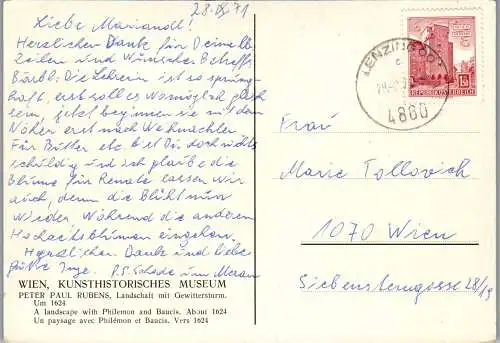 28.IX.71
Liebe Mariandl!
Herzlichen Dank für Deine lb.
Zeilen und Wünsche Betreffs
Bärbl. Die Lehrerin ist so sprung-
haft, erst soll es womöglich gleich
sein, jetzt beginnen sie mit dem
Nähen erst nach Weihnachten
Für Butter etc bist Du doch nichts
schuldig und ich glaube die
Blume für Renate lassen wir
auch, denn die Blüht nun
wieder während die anderen
Hochzeitsblumen eingehen.
Herzlichen Dank und liebe
Grüße Inge. P.S. Schade um Meran
WIEN, KUNSTHISTORISCHES MUSEUM
PETER PAUL RUBENS, Landschaft mit Gewittersturm.
Um 1624
A landscape with Philemon and Baucis. About 1624
Un paysage avec Philémon et Baucis. Vers 1624
LENZING OÖ
4860
REPUBLIK ÖSTERREICH
Frau
Marie Tollovich
1070 Wien
Siebensterngasse 28/19